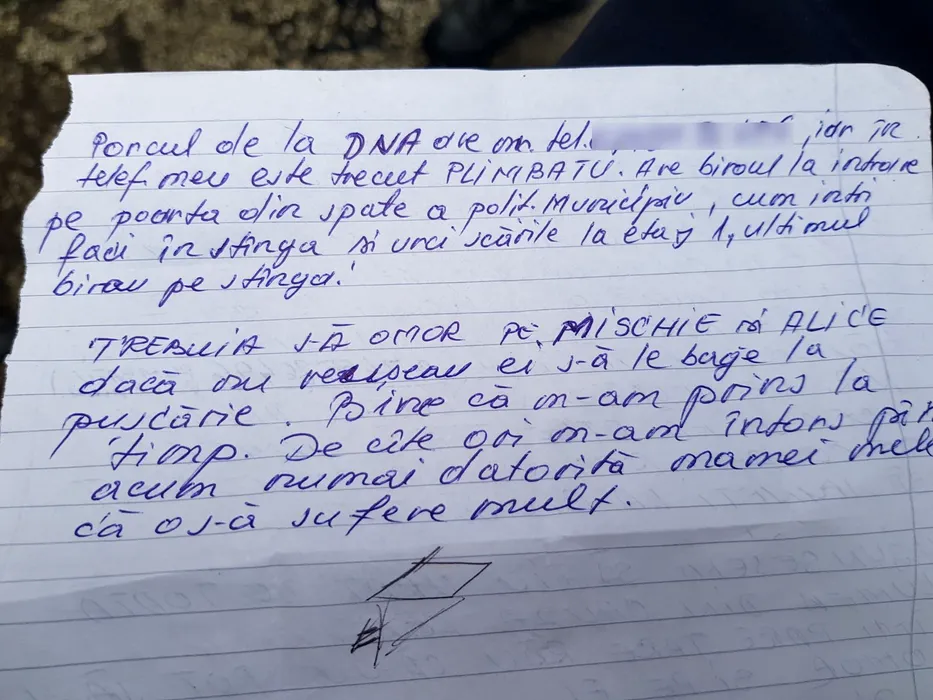 Porcul de la DNA are nr. tel. , iar în
telef. meu este trecut PLIMBATU. Are biroul la intrare
pe poarta din spate a polit. Municipiu, cum intri
faci în stînga și urci scările la etaj 1, ultimul
birou pe stînga!
TREBUIA SĂ OMOR PE MISCHIE și ALICE
dacă nu reușeau ei să le bage la
pușcărie. Bine că m-am prins la
timp. De cîte ori m-am întors pîn
acum numai datorită mamei mele
că o să sufere mult.